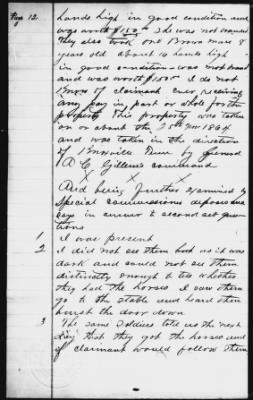 Page 12.
hands high in good condition and
was worth $150 - She was not branded
They also took out Brown Mare 8
years old about 14 hands high
in good condition - was not brand
and was worth $100 - I do not
know of claimant ever receiving
any pay in part or whole for the
property This property was taken
on or about the 25th 1864
and was taken in the direction
of Knoxville Tenn by General
A C Gillem's command
X X X
And being further examined by
special commissioner deponent
says in answer to second set ques
tions
1 I was present
2 I did not see them but as it was
dark and could not see them
distinctly enough to see whether
they had the horses I saw them
go to the stable and heard them
burst the door down
3 The same soldiers told us the next
day that they got the horses and
if claimant would follow them